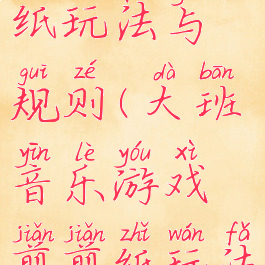 纸玩法与
guī zé dà bān
规则(大班
yīn lè yóu xì
音乐游戏
jiǎn jiǎn zhǐ wán fǎ
剪剪纸玩法